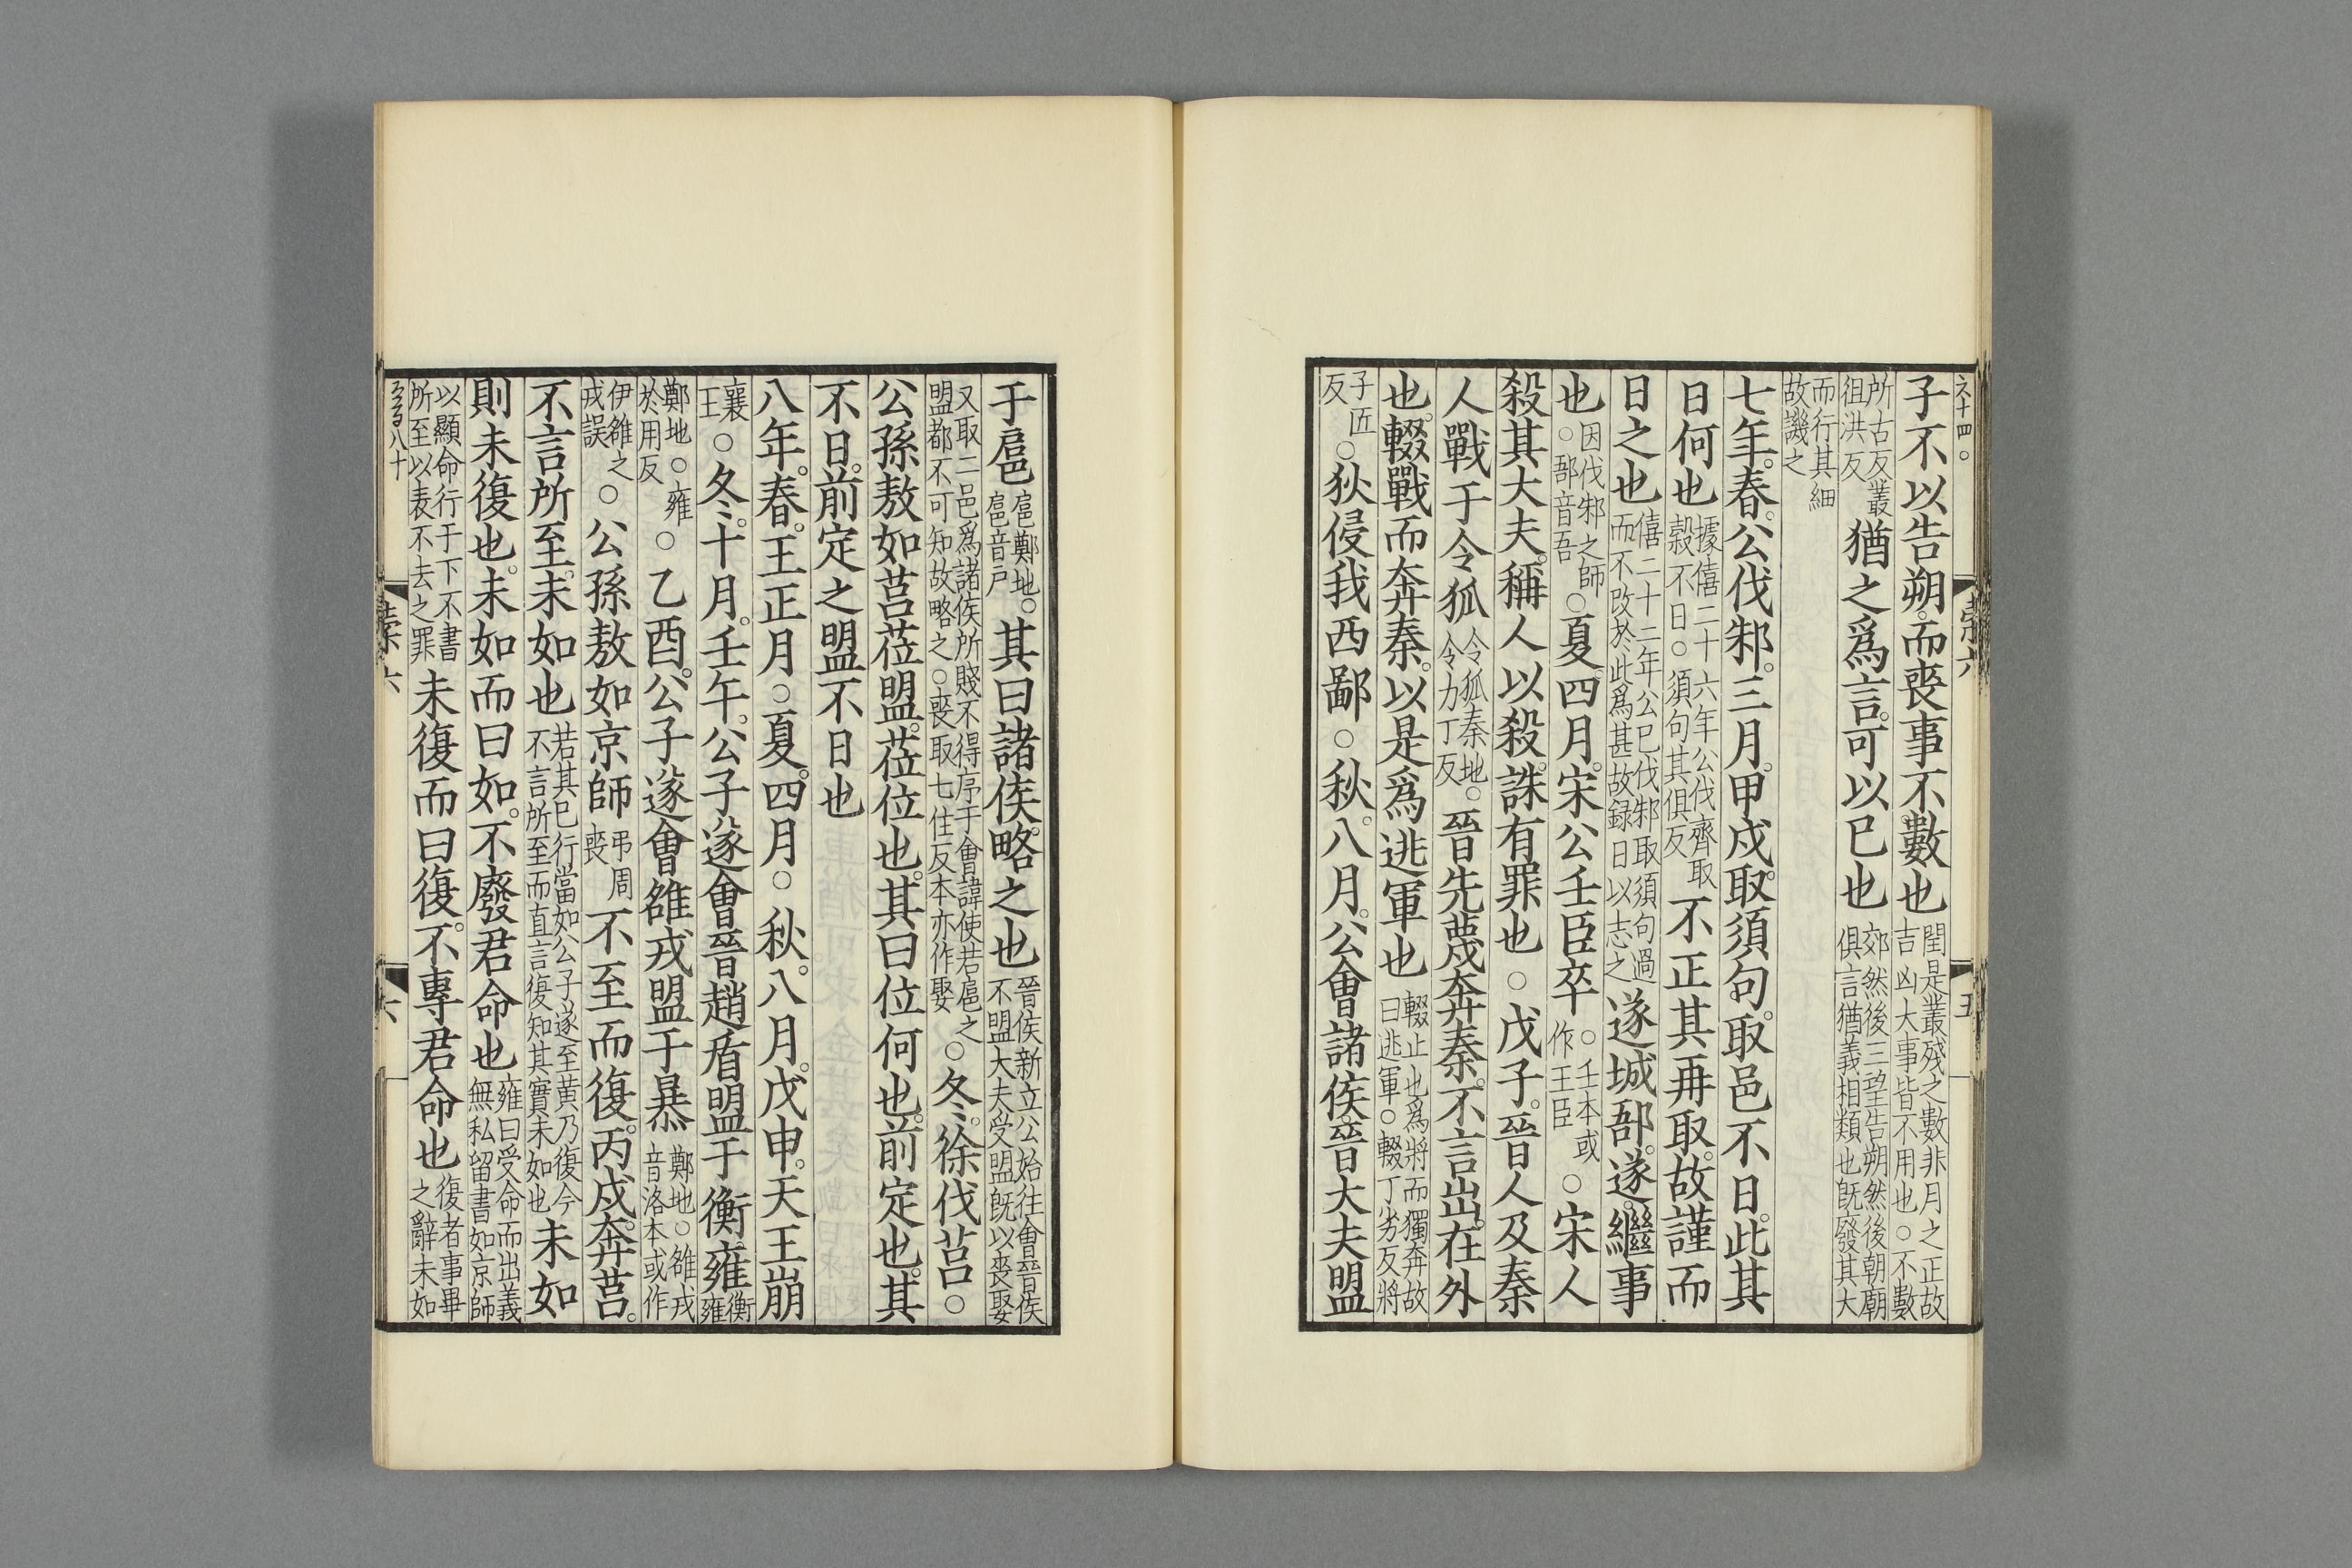 子不以告朔而喪事不數也閏是叢殘之數非月之正故吉凶大事皆不用也○不數
所古反叢徂洪反猶之爲言可以已也郊然後三望告朔然後朝廟俱言猶義相類也旣廢其大
而行其細故譏之
七年春公伐邾三月甲戌取須句取邑不日此其
日何也據僖二十六年公伐齊取穀不日○須句其俱反不正其再取故謹而
日之也僖二十二年公已伐邾取須句過而不改於此爲甚故録日以志之遂城郚遂繼事
也因伐邾之師○郚音吾○夏四月宋公壬臣卒○壬本或作王臣○宋人
殺其大夫稱人以殺誅有罪也○戊子晉人及秦
人戰于令狐令狐秦地○令力丁反晉先蔑奔秦不言出在外
也輟戰而奔秦以是爲逃軍也輟止也爲將而獨奔故曰逃軍○輟丁劣反將
子匠反○狄侵我西鄙○秋八月公會諸侯晉大夫盟
于扈扈鄭地○扈音戸其曰諸侯略之也晉侯新立公始往會晉侯不盟大夫受盟旣以喪娶
又取二邑爲諸侯所賤不得序于會諱使若扈之盟都不可知故略之○喪取七住反本亦作娶○冬徐伐莒○
公孫敖如莒莅盟莅位也其曰位何也前定也其
不日前定之盟不日也
八年春王正月○夏四月○秋八月戊申天王崩
襄王○冬十月壬午公子遂會晉趙盾盟于衡雍衡雍
鄭地○雍於用反○乙酉公子遂會雒戎盟于暴鄭地○雒戎音洛本或作
伊雒之戎誤○公孫敖如京師弔周喪不至而復丙戌奔莒
不言所至未如也若其已行當如公子遂至黄乃復今不言所至而直言復知其實未如也未如
則未復也未如而曰如不廢君命也雍曰受命而出義無私留書如京師
以顯命行于下不書所至以表不去之罪未復而曰復不專君命也復者事畢之辭未如